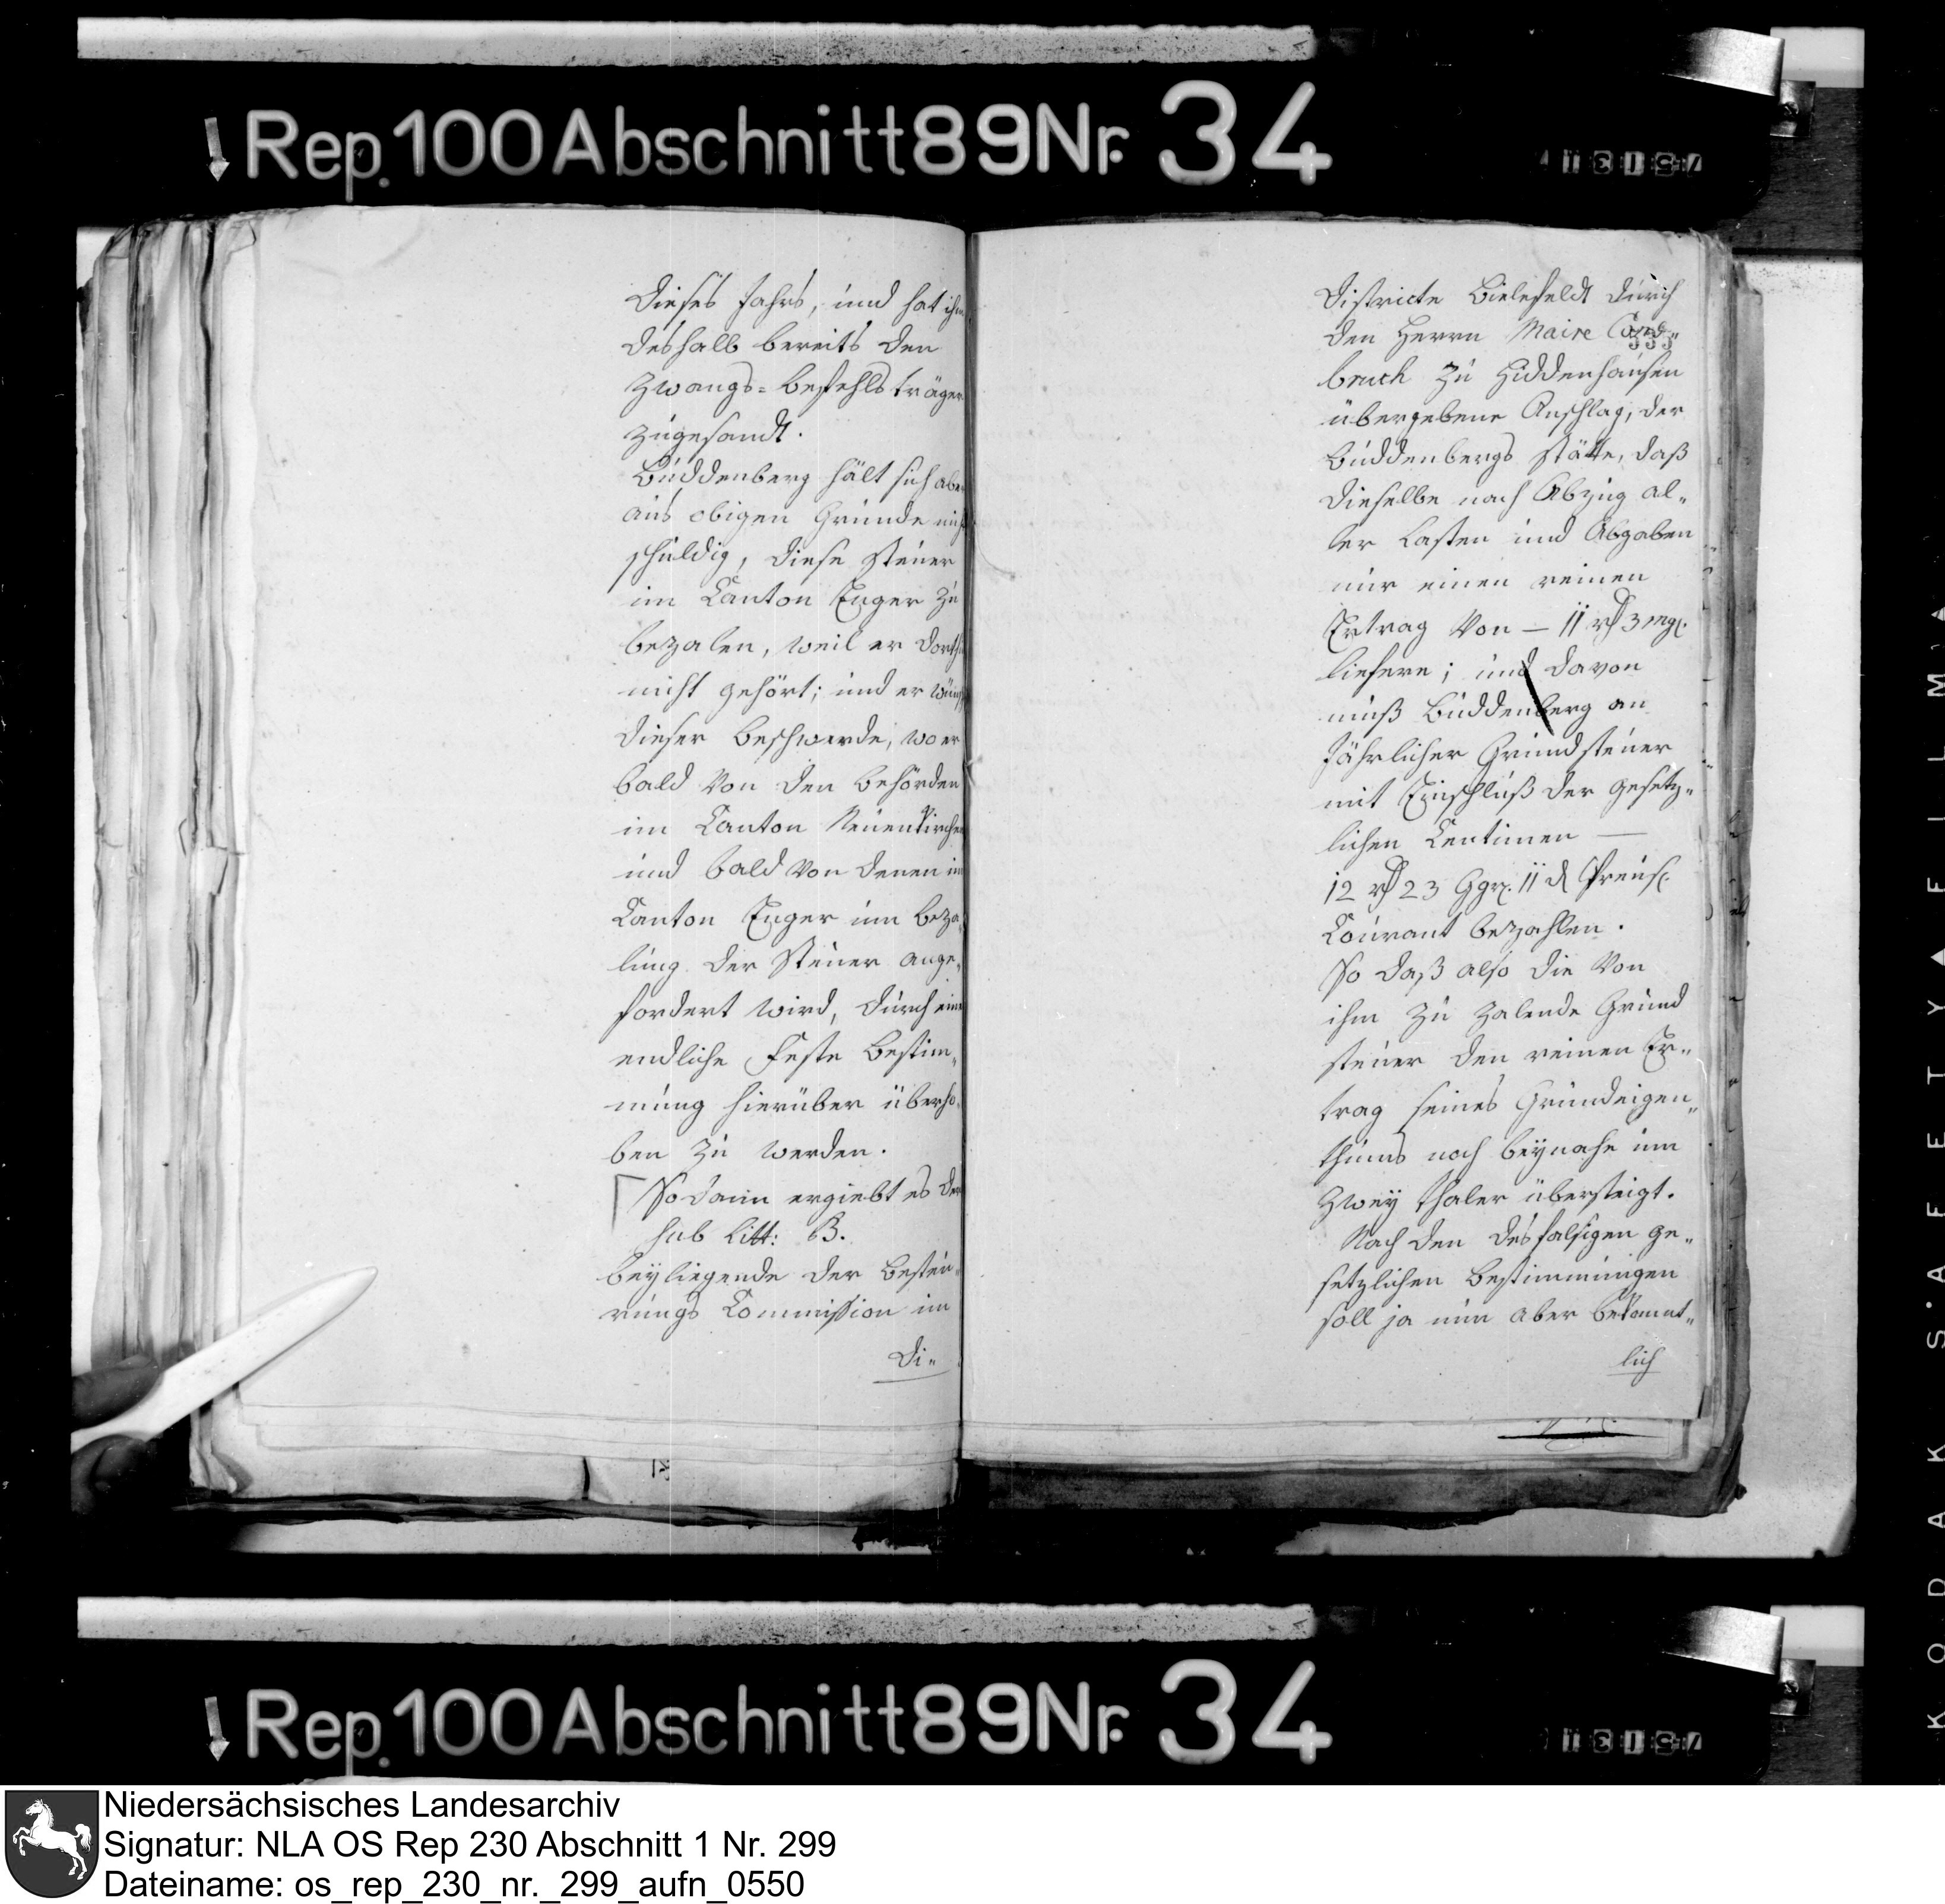 Rep. 100 Abschnitt 89 Nr. 34
dieses Jahrs, und hat ihm
deshalb bereits den
Zwangs=Befehlsträger
zugesandt.
Buddenberg hält sich aber
aus obigen Grunde nicht
schuldig, diese Steuer
im Canton Enger zu
bezalen, weil er dorthin
nicht gehört; und er wünscht
dieser Beschwerde, wo er
bald von den Behörden
im Canton Neuenkirchen
und bald von denen im
Canton Enger um Beza„
lung der Steuer ange„
fordert wird, durch eine
endliche feste Bestim„
mung hierüber überho„
ben zu werden.
So dann ergiebt es der
sub Litt: B.
beyliegende der Besteu„
rungs Commission im
Di„
Districte Bielefeldt durch
den Herrn Maire Cons„
333
bruch zu Hiddenhausen
übergebene Anschlag, der
Buddenbergs Stätte, daß
dieselbe nach Abzug al„
ler Lasten und Abgaben
nur einen reinen
Ertrag von — 11 rl 3 mgl.
liefere; und davon
muß Buddenberg an
jährlicher Grundsteuer
mit Einschluß der gesetz„
lichen Centimen —
12 rl 23 Ggr. 11 d Preuß.
Courant bezahlen.
So daß also die von
ihm zu zalende Grund
steuer den reinen Er„
trag seines Grundeigen„
thums noch beynahe um
zwey Thaler übersteigt.
Nach den desfalsigen ge„
setzlichen Bestimmungen
soll ja nun aber bekannt„
lich
KODAK S.AFETY▲FILM▲
Rep. 100 Abschnitt 89 Nr. 34
Niedersächsisches Landesarchiv
Signatur: NLA OS Rep 230 Abschnitt 1 Nr. 299
Dateiname: os_rep_230_nr._299_aufn_0550